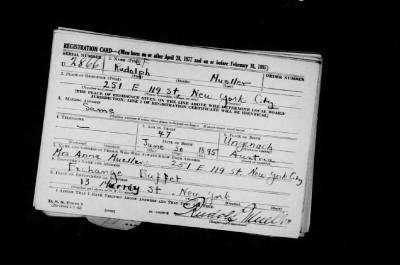 REGISTRATION CARD—(Men born on or after April 28, 1877 and on or before February 16, 1897)
SERIAL NUMBER 1. NAME (Print) ORDER NUMBER
U 2866 Rudolph Mueller
2. PLACE OF RESIDENCE (Print)
251 E 119 St. New York City
[THE PLACE OF RESIDENCE GIVEN ON THE LINE ABOVE WILL DETERMINE LOCAL BOARD
JURISDICTION; LINE 2 OF REGISTRATION CERTIFICATE WILL BE IDENTICAL]
3. MAILING ADDRESS
Same
4. TELEPHONE 5. AGE IN YEARS 6. PLACE OF BIRTH
— 47
June 20 1895 Austria
7. NAME AND ADDRESS OF PERSON WHO WILL ALWAYS KNOW YOUR ADDRESS
Mrs Anna Mueller 251 E 119 St New York City
8. EMPLOYER'S NAME AND ADDRESS
Exchange Buffet
9. PLACE OF EMPLOYMENT OR BUSINESS
13 Murray St. New York
I AFFIRM THAT I HAVE VERIFIED ABOVE ANSWERS AND THAT THEY ARE TRUE.
D. S. S. Form 1